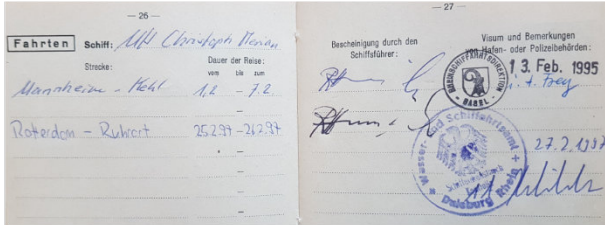 — 26 —
Fahrten Schiff: MS Christoph Merian
Strecke: Dauer der Reise:
vom bis zum
Mannheim - Kehl 1.2. - 7.2.
Roterdam - Ruhrort 25.2.97 - 26.2.97
— 27 —
Bescheinigung durch den Schiffsführer:
Visum und Bemerkungen von Hafen- oder Polizeibehörden:
RHEINSCHIFFAHRTSDIREKTION BASEL
13. Feb. 1995
i. A. Frey
Wasser- und Schiffahrtsamt
Duisburg Rhein
27.2.1997